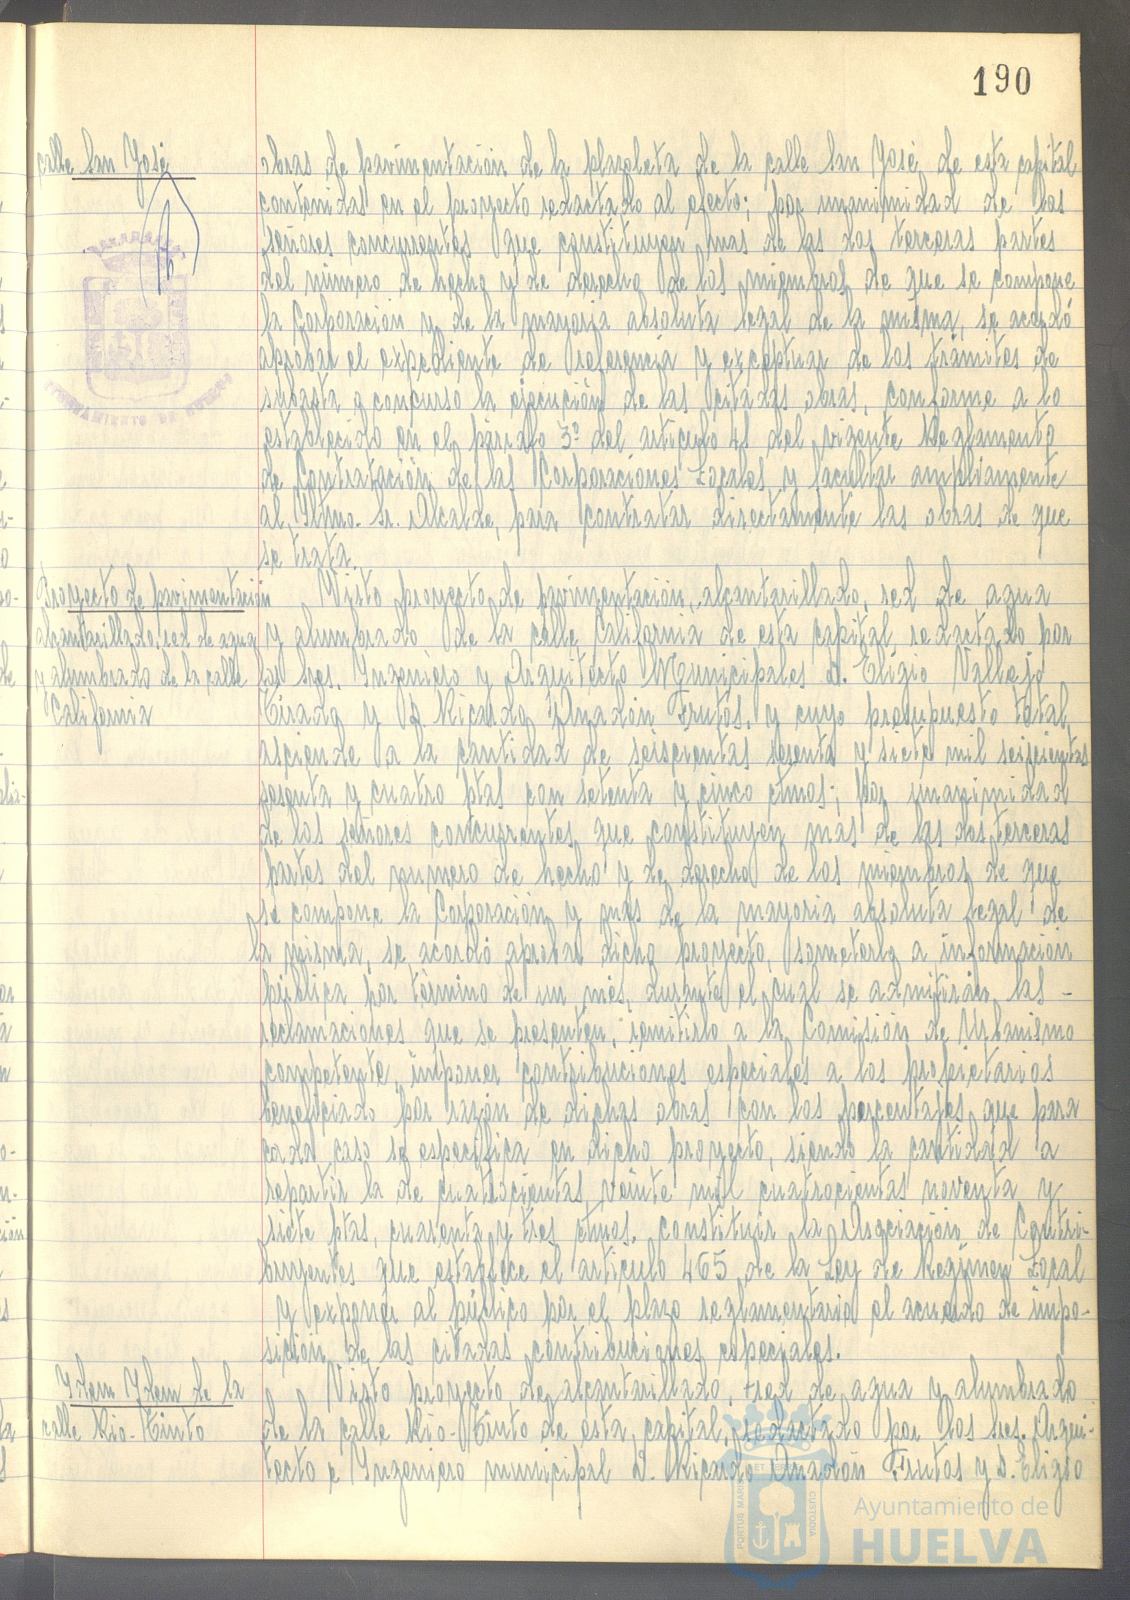 190
calle San José
obras de pavimentación de la plazoleta de la calle San José de esta capital
contenidas en el proyecto redactado al efecto; por unanimidad de los
señores concurrentes que constituyen mas de las dos terceras partes
del número de hecho y de derecho de los miembros de que se compone
la Corporación y de la mayoria absoluta legal de la misma, se acordó
aprobar el expediente de referencia y exceptuar de los trámites de
subasta o concurso la ejecución de las citadas obras, conforme a lo
establecido en el párrafo 3º del articulo 41 del vigente Reglamento
de Contratación de las Corporaciones Locales y facultar ampliamente
al Iltmo. Sr. Alcalde, para contratar directamente las obras de que
se trata.
Proyecto de pavimentación
alcantarillado, red de agua
y alumbrado de la calle
California
Visto proyecto de pavimentación, alcantarillado, red de agua
y alumbrado de la calle California de esta capital redactado por
los Sres. Ingeniero y Arquitecto Municipales D. Eligio Vallejo
Tirado y D. Ricardo Anadón Frutos, y cuyo presupuesto total
asciende a la cantidad de seiscientas sesenta y siete mil seiscientas
sesenta y cuatro ptas con setenta y cinco ctmos; por unanimidad
de los señores concurrentes que constituyen más de las dos terceras
partes del numero de hecho y de derecho de los miembros de que
se compone la Corporación y más de la mayoria absoluta legal de
la misma, se acordó aprobar dicho proyecto, someterlo a información
pública por término de un mes, durante el cual se admitirán las -
reclamaciones que se presenten, remitirlo a la Comisión de Urbanismo
competente, imponer contribuciones especiales a los propietarios
beneficiado por razón de dichas obras con los porcentajes que para
cada caso se especifica en dicho proyecto, siendo la cantidad a
repartir la de cuatrocientas veinte mil cuatrocientas noventa y
siete ptas, cuarenta y tres ctmos. constituir la Asociación de Contri-
buyentes que establece el artículo 465 de la Ley de Regimen Local
y exponer al público por el plazo reglamentario el acuerdo de impo-
sición de las citadas contribuciones especiales.
Idem Idem de la
calle Rio-Tinto
Visto proyecto de alcantarillado, red de agua y alumbrado
de la calle Rio-Tinto de esta capital, redactado por los Sres. Arqui-
tecto e Ingeniero municipal D. Ricardo Anadón Frutos y D. Eligio
PORTUS MARIS ET TERRAE CUSTODIA
Ayuntamiento de
HUELVA